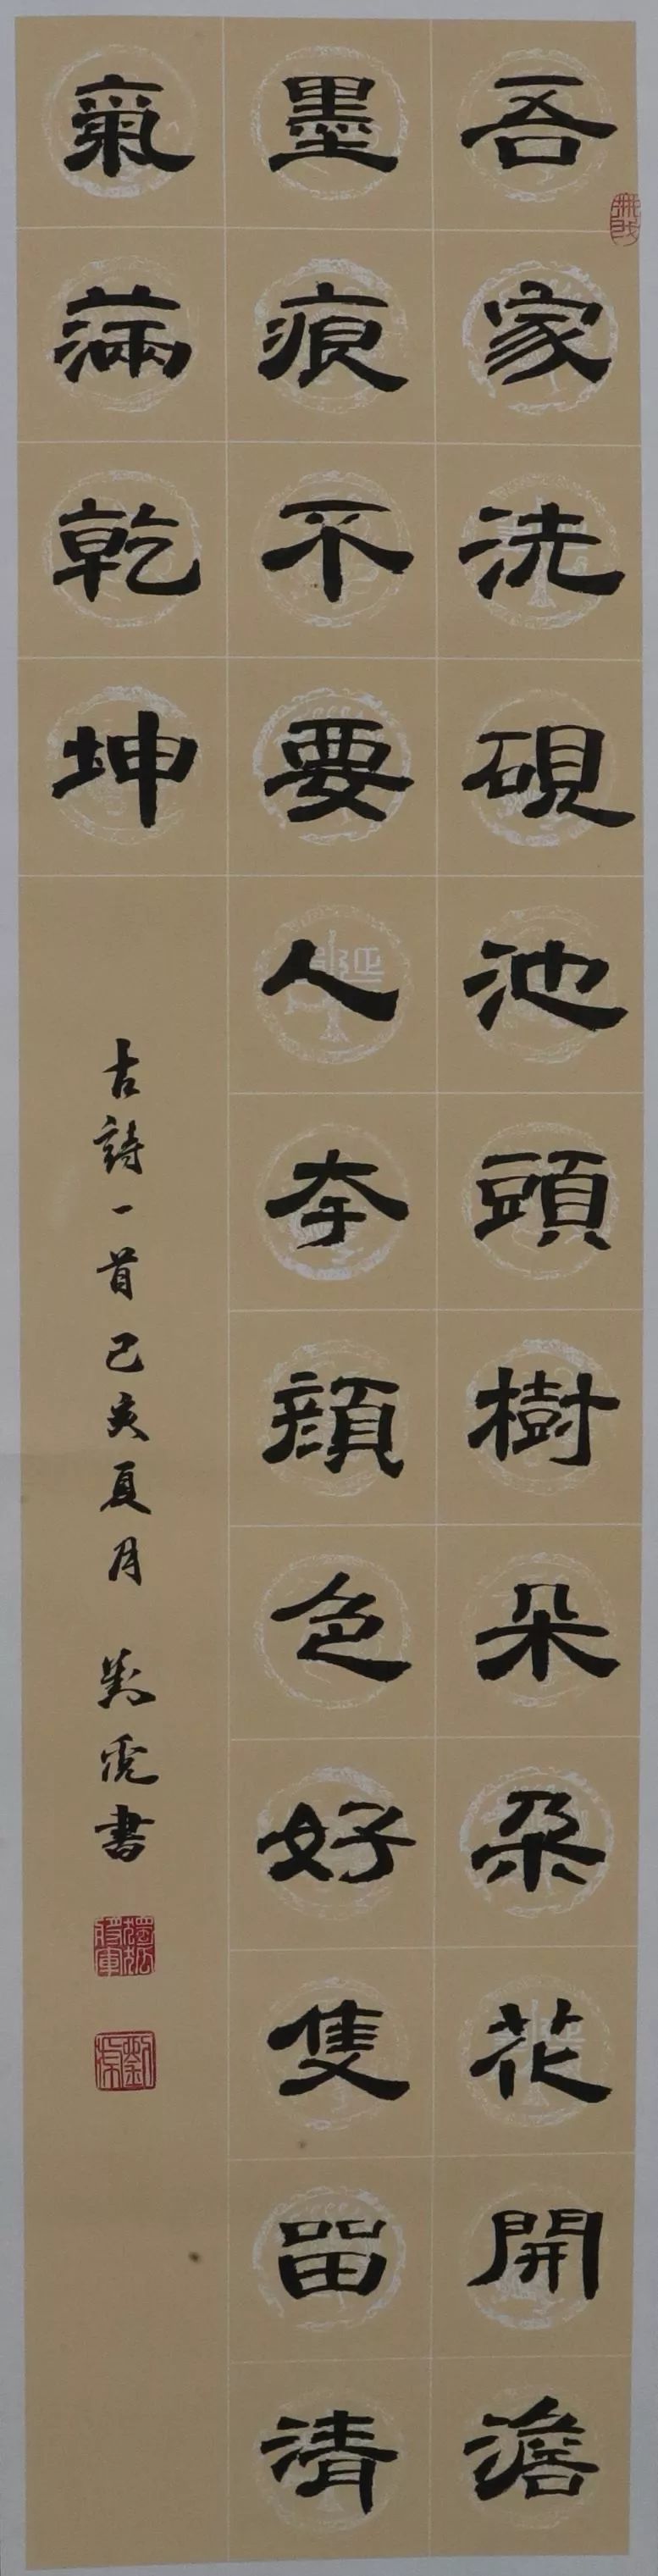 吾家洗硯池頭樹朵朵花開澹
墨痕不要人夸顔色好隻畱清
氣滿乾坤
古詩一首己亥夏月 劉虎書